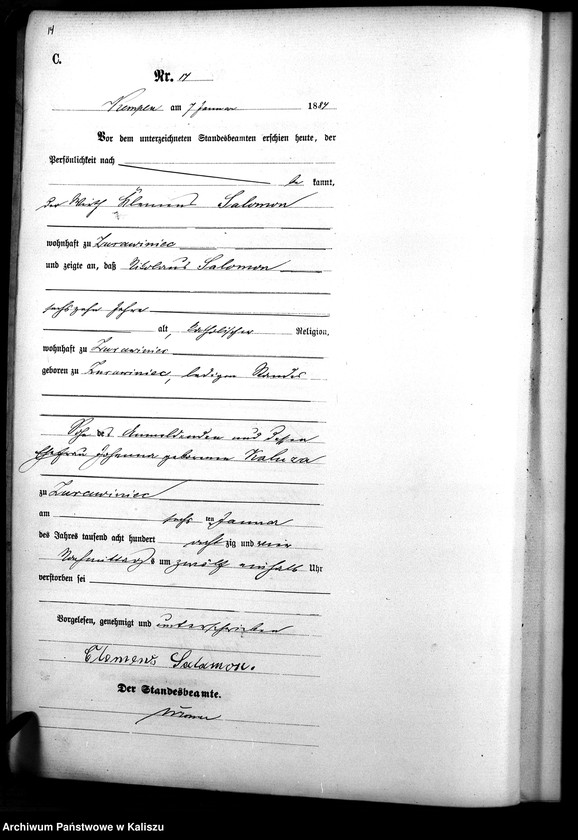 14
C.
Nr. 14
Kempen am 7 Januar 1884
Vor dem unterzeichneten Standesbeamten erschien heute, der
Persönlichkeit nach
be kannt,
der Wirth Klemens Salomon
wohnhaft zu Zurawiniec
und zeigte an, daß Nikolaus Salomon
sechszehn Jahre
alt, katholischer Religion,
wohnhaft zu Zurawiniec
geboren zu Zurawiniec, ledigen Standes
Sohn des Anmeldenden und dessen
Ehefrau Johanna geborenen Kaluza
zu Zurawiniec
am sechs ten Januar
des Jahres tausend acht hundert acht zig und vier
Nachmittags um zwölf einhalb Uhr
verstorben sei
Vorgelesen, genehmigt und unterschrieben
Clemens Salamon.
Der Standesbeamte.
Archiwum Państwowe w Kaliszu